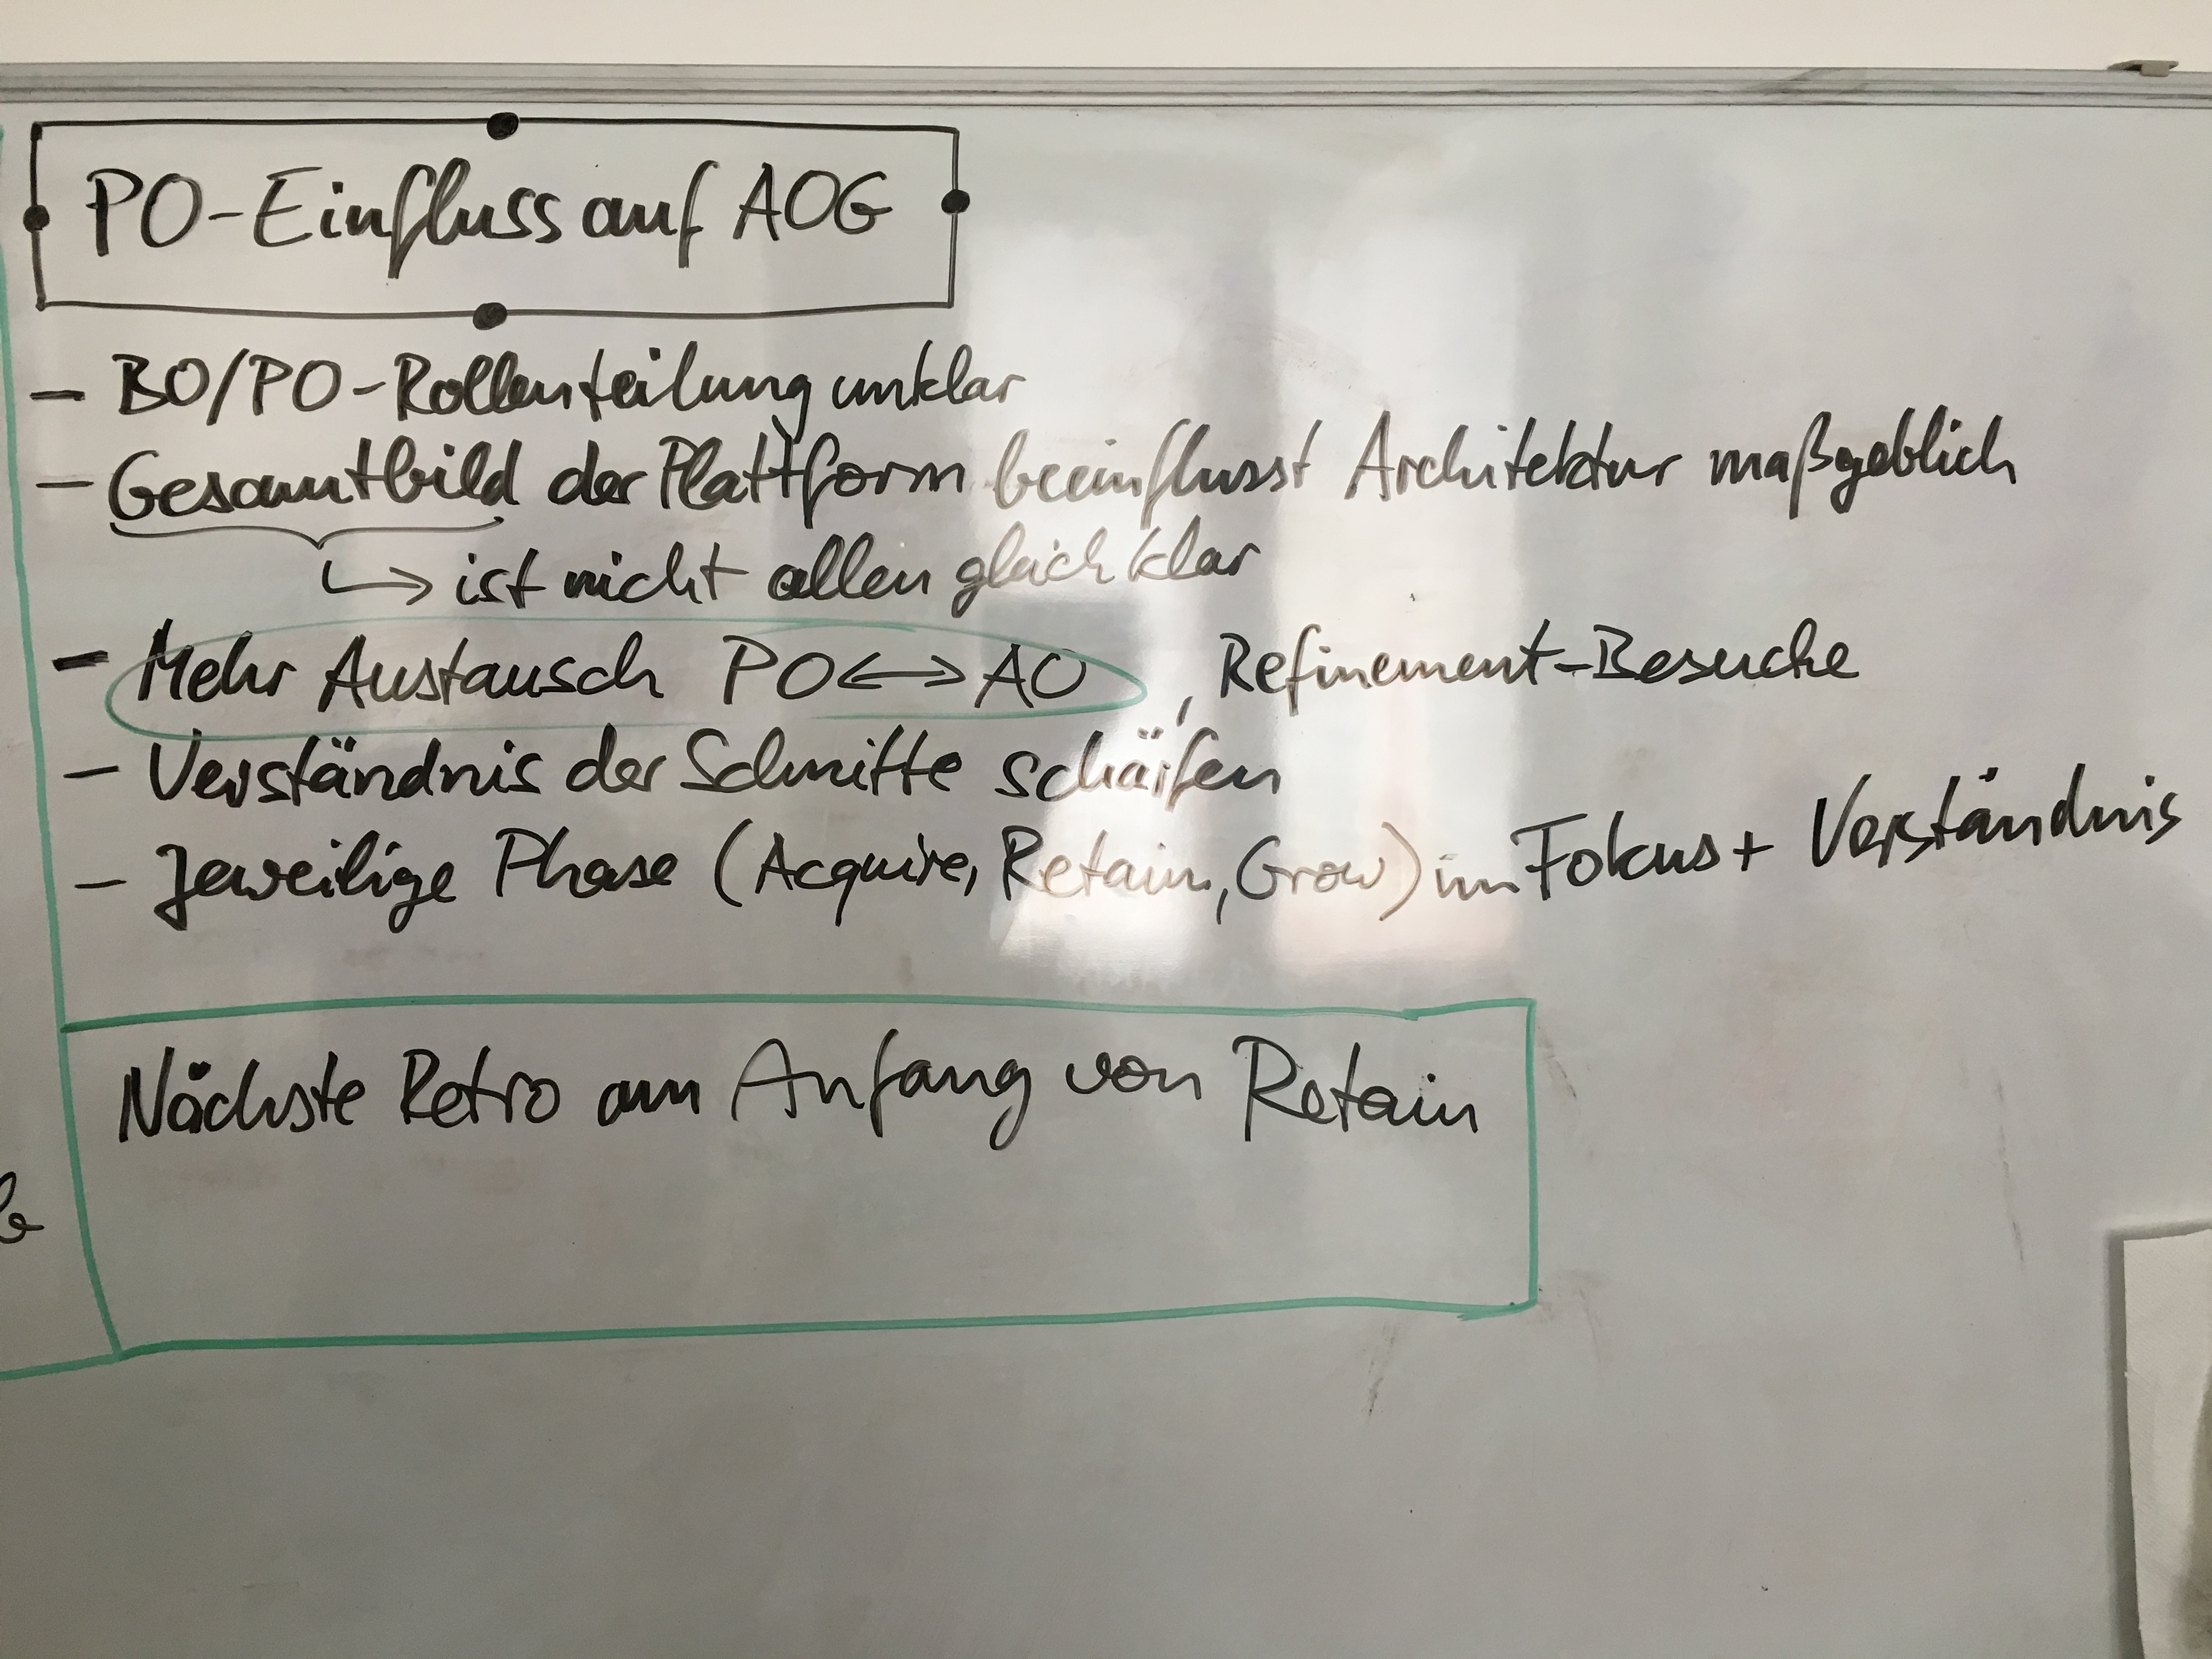 PO-Einfluss auf AOG
- BO/PO-Rollenteilung unklar
- Gesamtbild der Plattform beeinflusst Architektur maßgeblich
↳ ist nicht allen gleich klar
- Mehr Austausch PO <-> AO, Refinement-Besuche
- Verständnis der Schnitte schärfen
- Jeweilige Phase (Acquire, Retain, Grow) im Fokus + Verständnis
Nächste Retro am Anfang von Retain